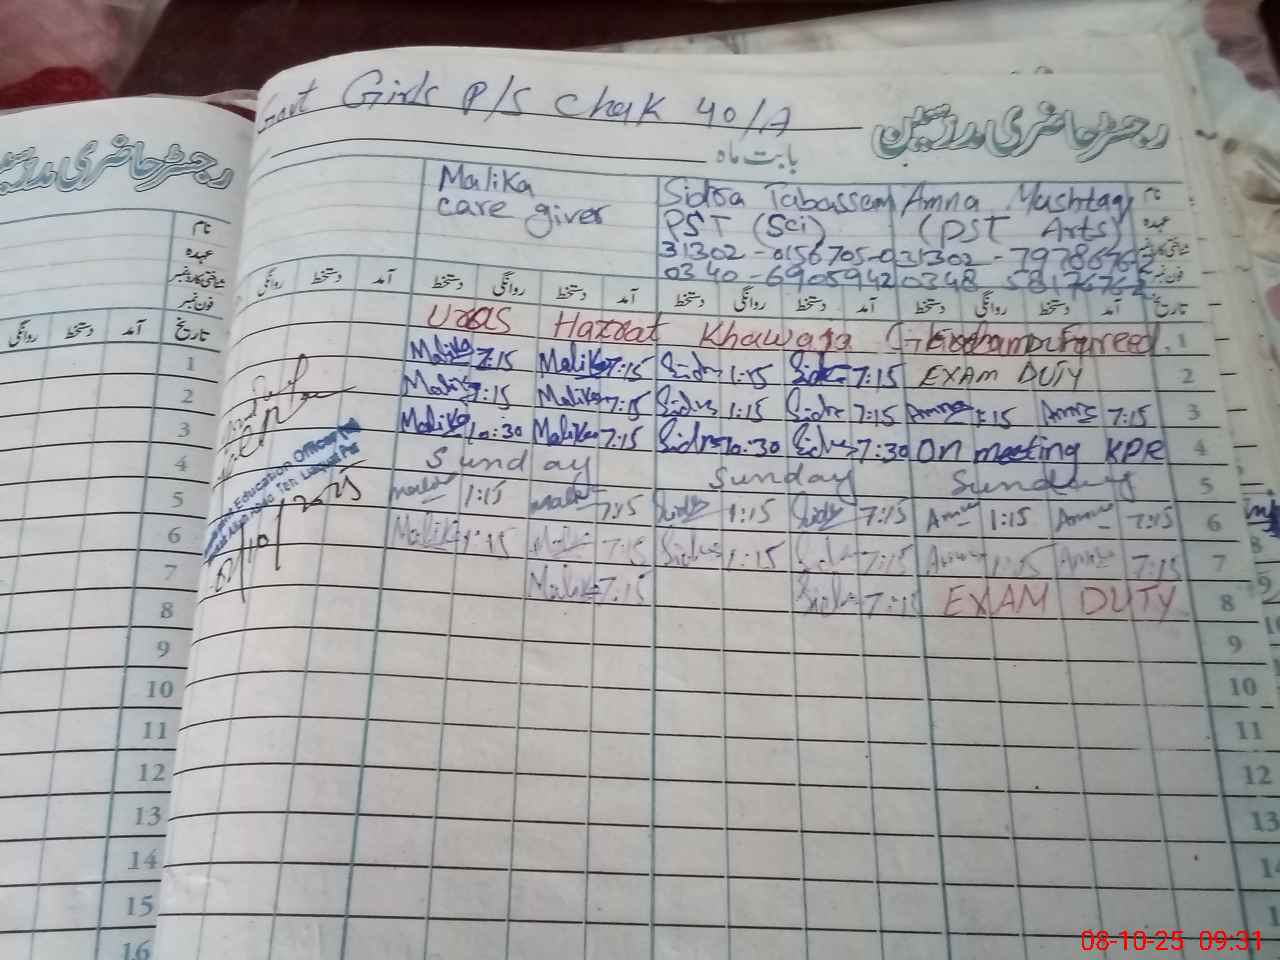 Govt Girls P/S Chak 40/A
رجسٹر حاضری مدرسین
بابت ماہ
Malika
care giver
Sidra Tabassem
PST (Sci)
31302-0156705-0
0340-6905942
Amna Mushtaq
(PST Arts)
0348
نام
عہدہ
شناختی کارڈ نمبر
فون نمبر
تاریخ
آمد دستخط روانگی دستخط آمد دستخط روانگی دستخط آمد دستخط روانگی
Uras Hazrat Khawaja Ghulam Fareed. 1
Malika 7:15 Malika 7:15 Sidra 1:15 Sidra 7:15 EXAM DUTY 2
Malika 7:15 Malika 7:15 Sidra 1:15 Sidra 7:15 Amna 1:15 Amna 7:15 3
Malika 10:30 Malika 7:15 Sidra 10:30 Sidra 7:30 On meeting KPR 4
Sunday Sunday Sunday 5
Malika 1:15 Malika 7:15 Sidra 1:15 Sidra 7:15 Amna 1:15 Amna 7:15 6
Malika 1:15 Malika 7:15 Sidra 1:15 Sidra 7:15 Amna 1:15 Amna 7:15 7
Malika 7:15 Sidra 7:15 EXAM DUTY 8
9
10
11
12
13
Education Officer
رجسٹر حاضری
نام
عہدہ
شناختی کارڈ نمبر
فون نمبر
تاریخ آمد دستخط روانگی
1
2
3
4
5
6
7
8
9
10
11
12
13
14
15
16
08-10-25 09:31